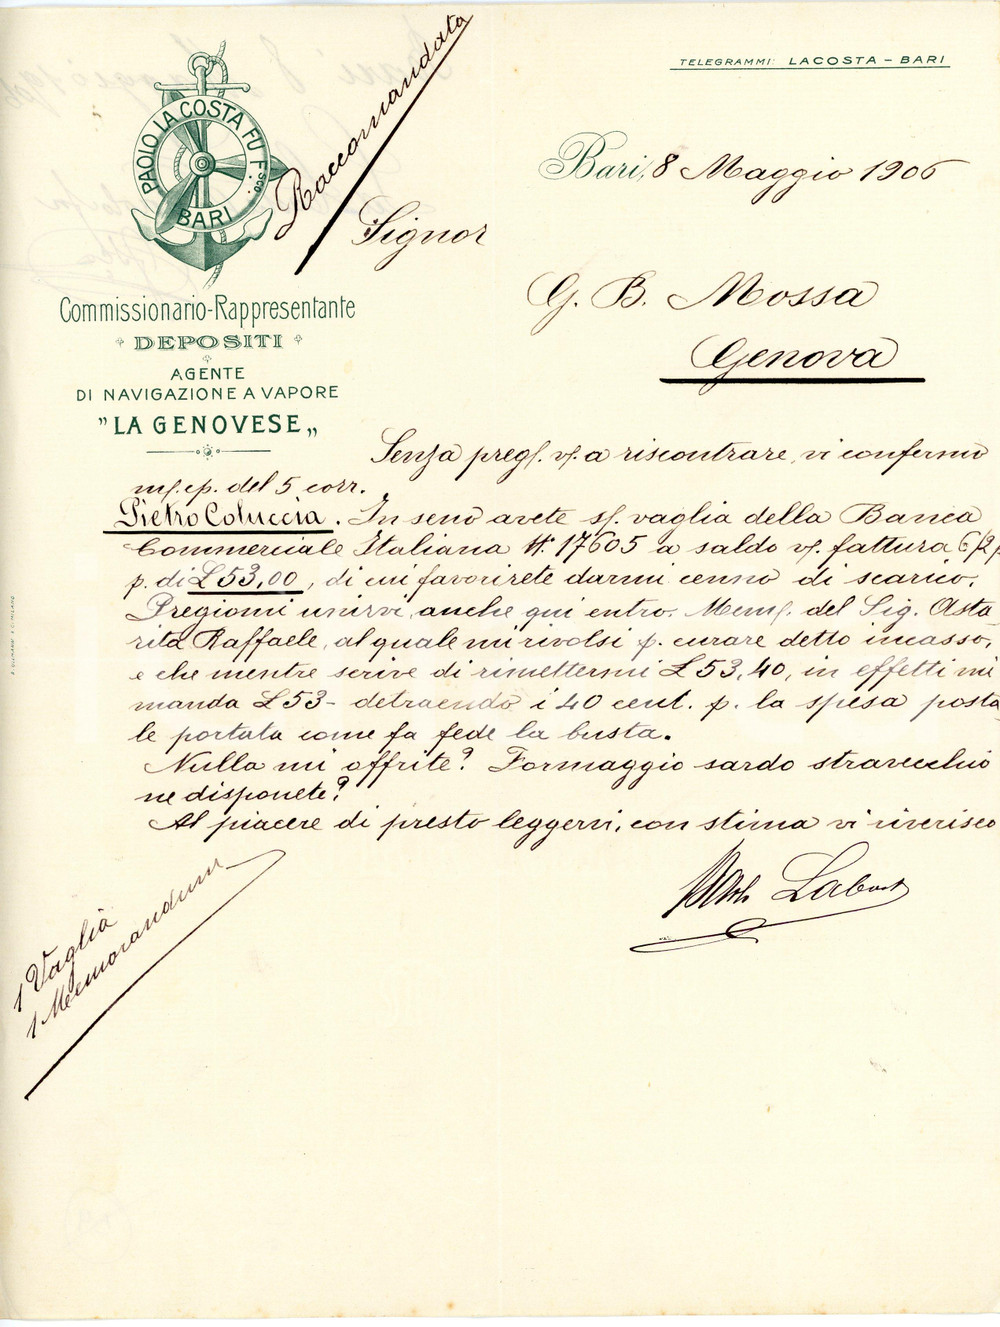 TELEGRAMMI: LACOSTA - BARI
PAOLO LA COSTA FU Fsco.
BARI
Raccomandata
Bari, 8 Maggio 1906
Signor
G. B. Mossa
Genova
Commissionario-Rappresentante
DEPOSITI
AGENTE
DI NAVIGAZIONE A VAPORE
"LA GENOVESE„
Senza preg/. v/. a riscontrare, vi confermo
m/. cp. del 5 corr.
Pietro Coluccia. In seno avete s/. vaglia della Banca
Commerciale Italiana N. 17605 a saldo v/. fattura 6/2 p.
p. di £ 53,00, di cui favorirete darmi cenno di scarico.
Pregiomi unirvi, anche qui entro. Mem/. del Sig. Asta
rita Raffaele, al quale mi rivolsi p. curare detto incasso,
e che mentre scrive di rimettermi £ 53,40, in effetti mi
manda £ 53 - detraendo i 40 cent. p. la spesa posta
le portata come fa fede la busta.
Nulla mi offrite? Formaggio sardo stravecchio
ne disponete?
Al piacere di presto leggervi, con stima vi riverisco
1 Vaglia
1 Memorandum